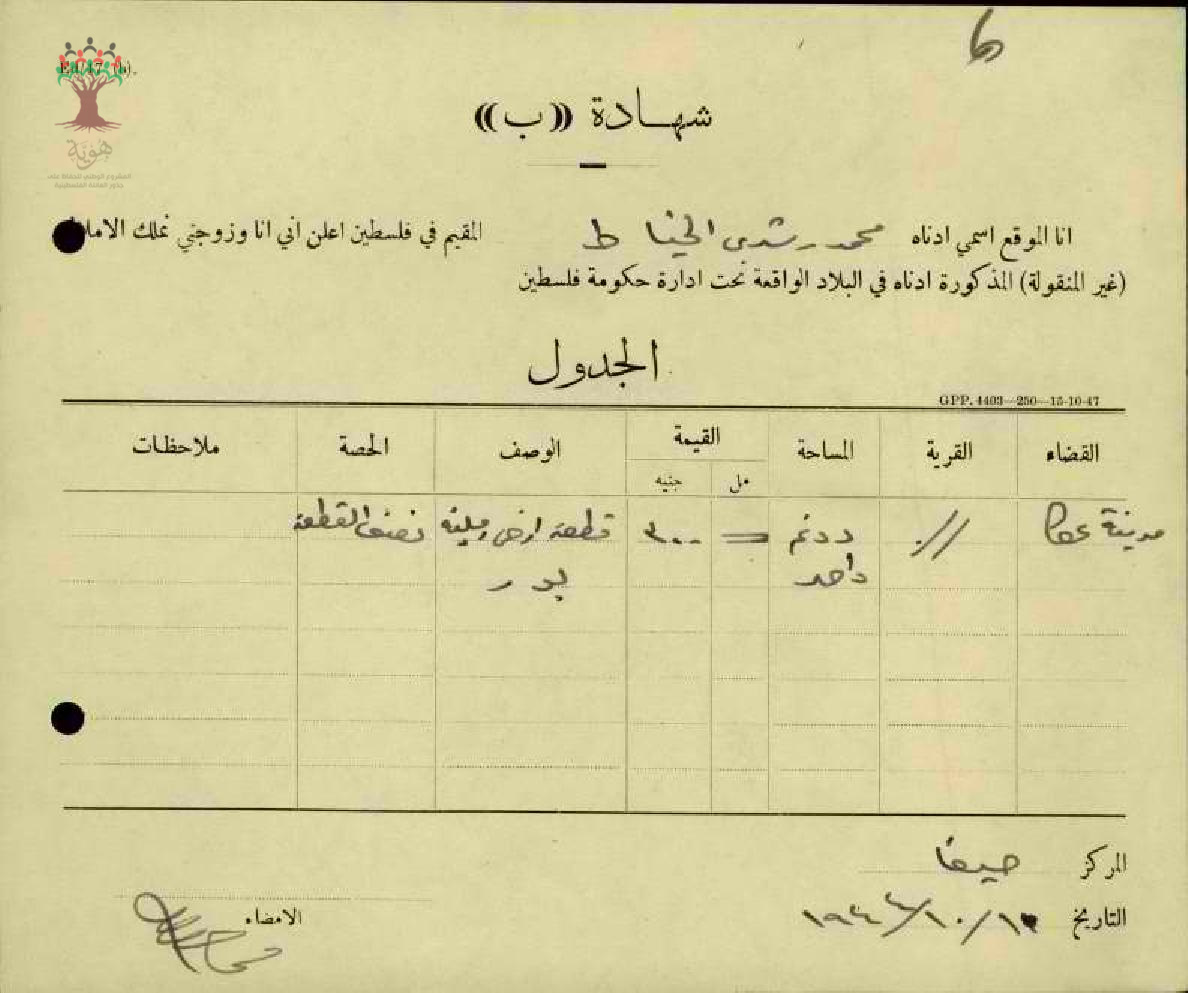 Ed/47 (b).
هوية
المشروع الوطني للحفاظ على
جذور العائلة الفلسطينية
شهادة ((ب))
انا الموقع اسمي ادناه محمد رشدي الخياط المقيم في فلسطين اعلن اني انا وزوجتي نملك الاملاك
(غير المنقولة) المذكورة ادناه في البلاد الواقعة تحت ادارة حكومة فلسطين
الجدول
GPP. 4403—250—15-10-47
القضاء القرية المساحة القيمة الوصف الحصة ملاحظات
مل جنيه
مدينة عكا // دونم = ٣٠٠ قطعة ارض نصف القطعة
واحد بور
المركز حيفا
التاريخ
الامضاء